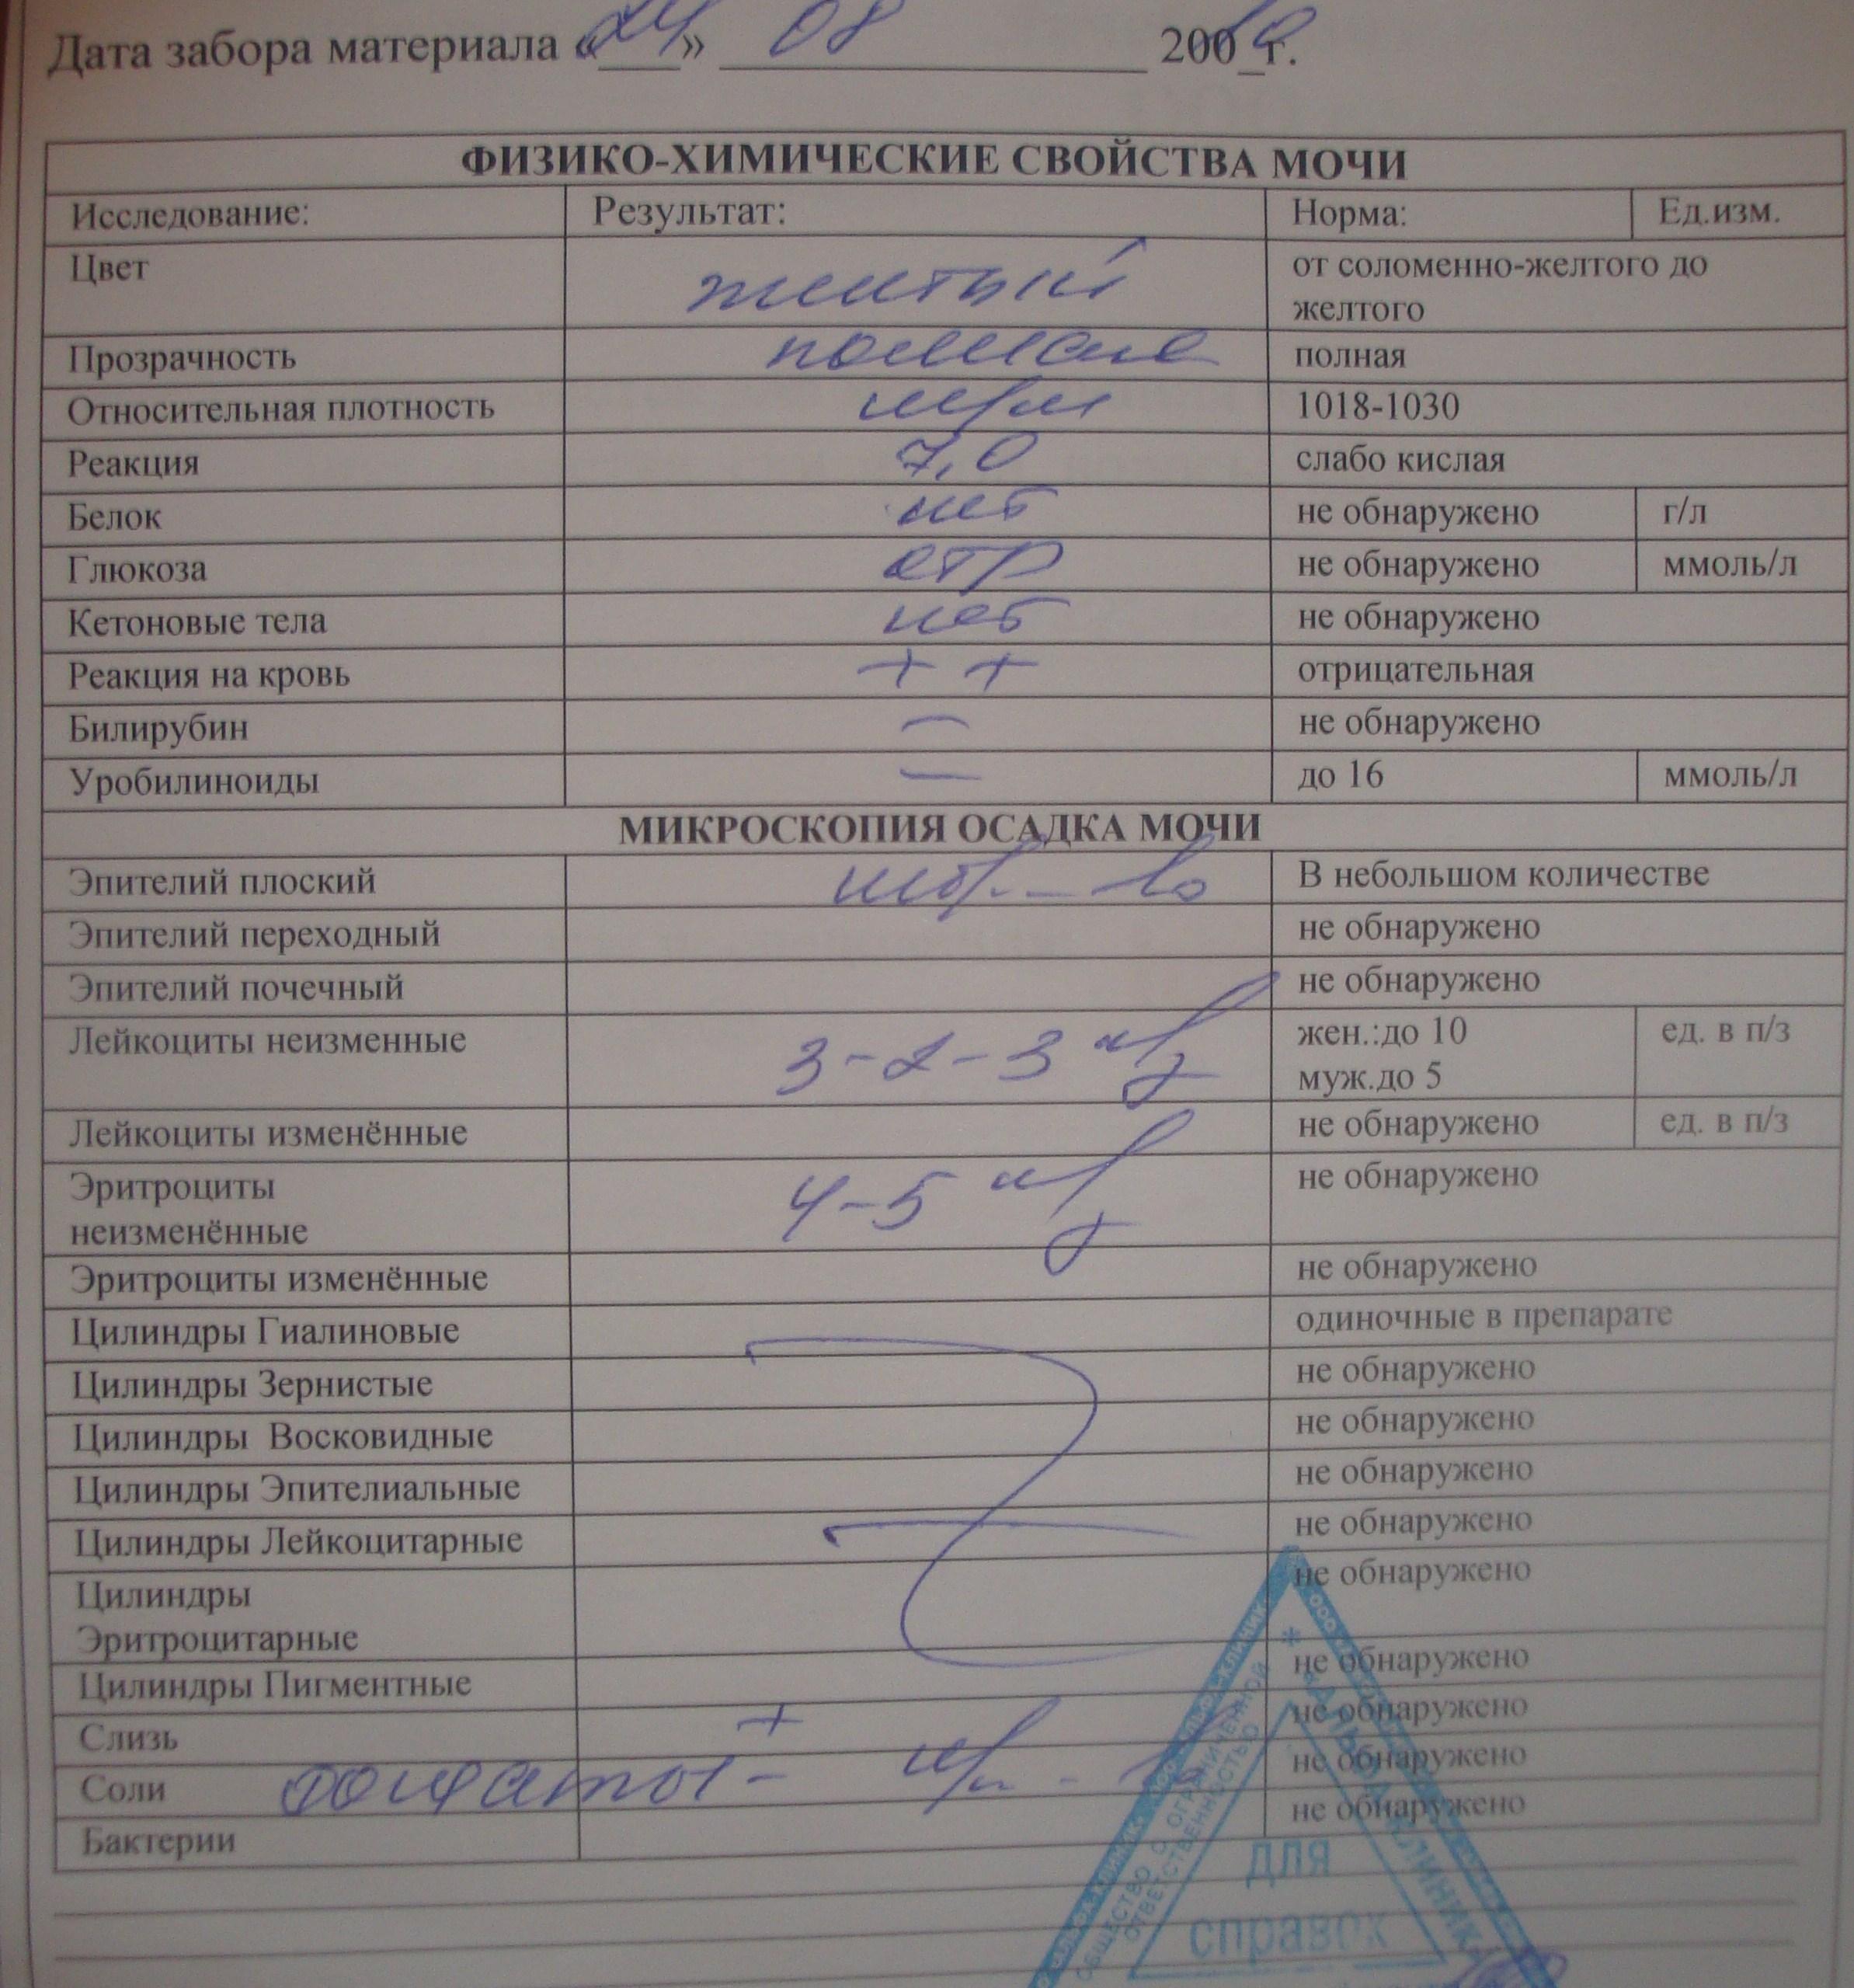 Дата забора материала «24» 08 200 г.
ФИЗИКО-ХИМИЧЕСКИЕ СВОЙСТВА МОЧИ
Исследование: Результат: Норма: Ед.изм.
Цвет желтый от соломенно-желтого до
желтого
Прозрачность полная полная
Относительная плотность м/м 1018-1030
Реакция 7,0 слабо кислая
Белок нет не обнаружено г/л
Глюкоза отр не обнаружено ммоль/л
Кетоновые тела нет не обнаружено
Реакция на кровь + + отрицательная
Билирубин — не обнаружено
Уробилиноиды — до 16 ммоль/л
МИКРОСКОПИЯ ОСАДКА МОЧИ
Эпителий плоский В небольшом количестве
Эпителий переходный не обнаружено
Эпителий почечный не обнаружено
Лейкоциты неизменные 3-2-3 п/з жен.:до 10 ед. в п/з
муж.до 5
Лейкоциты изменённые не обнаружено ед. в п/з
Эритроциты 4-5 п/з не обнаружено
неизменённые
Эритроциты изменённые не обнаружено
Цилиндры Гиалиновые одиночные в препарате
Цилиндры Зернистые не обнаружено
Цилиндры Восковидные не обнаружено
Цилиндры Эпителиальные не обнаружено
Цилиндры Лейкоцитарные не обнаружено
Цилиндры не обнаружено
Эритроцитарные
Цилиндры Пигментные не обнаружено
Слизь + не обнаружено
Соли не обнаружено
Бактерии не обнаружено
ОБЩЕСТВО С ОГРАНИЧЕННОЙ
ОТВЕТСТВЕННОСТЬЮ
для
справок